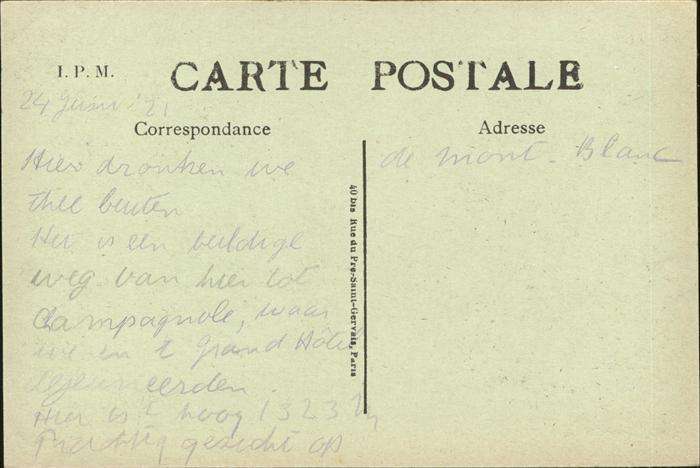 I. P. M.
CARTE POSTALE
24 Juni '21
Correspondance
Adresse
Hier dronken we
thee buiten
Het is een beeldige
weg van hier tot
Champagnole, waar
we in 't Grand Hôtel
dejeuneerden
Hier is 't hoog 1323 M
Prachtig gezicht op
de Mont-Blanc
40 bis Rue du Pré-Saint-Gervais, Paris